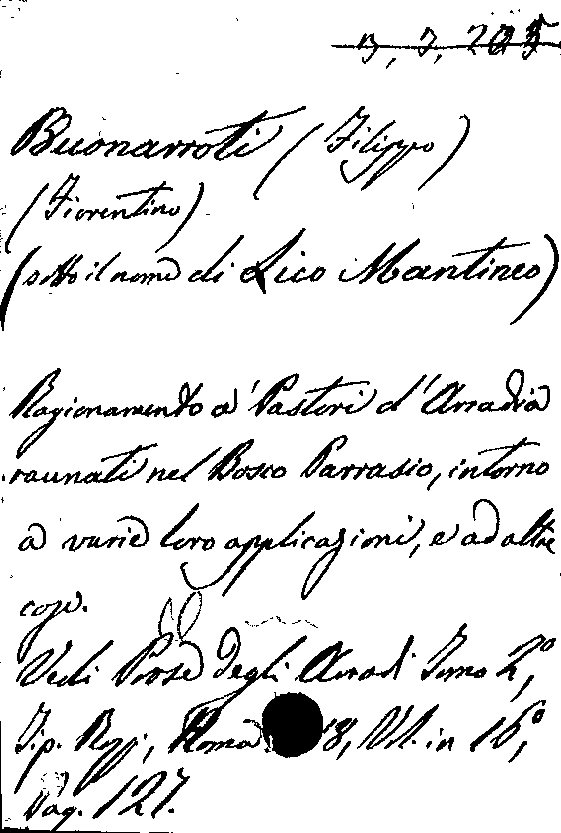 3, 7, 205
Buonarroti (Filippo)
(Fiorentino)
(sotto il nome di Lico Mantineo)
Ragionamento a' Pastori d'Arcadia
raunati nel Bosco Parrasio, intorno
a varie loro applicazioni, e ad altre
cose.
Vedi Prose degli Arcadi Tomo 2º,
Tip. Rossi, Roma 18, Vol. in 16º,
Pag. 127.